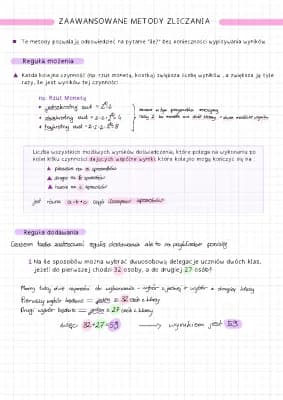 ZAAWANSOWANE METODY ZLICZANIA
Te metody pozwalają odpowiedzieć na pytanie "ile?" bez konieczności wypisywania wyników
Reguła mnożenia
Każda kolejna czynność (np. rzut monetą, kostką) zwiększa liczbę wyników, a zwiększa ją tyle
razy, ile jest wyników tej czynności
np. Rzut Monetą
jednokrotny rzut = 2
dwukrotny rzut = 2·2 = 4
trzykrotny rzut = 2·2·2 = 8
Liczba wszystkich możliwych wyników doświadczenia, które polega na wykonaniu po
kolei kilku czynności dających wspólne wyniki, które kolejno mogą kończyć się na:
pierwsza na a sposobów
druga na b sposobów
trzecia na c sposobów
jest równa a·b·c czyli iloczyn sposobów
Reguła dodawania
Czasem trzeba zastosować regułę dodawania ale to na przykładzie pokażę
1 Na ile sposobów można wybrać dwuosobową delegację uczniów dwóch klas,
jeżeli do pierwszej chodzi 32 osoby, a do drugiej 27 osób?
Mamy tutaj dwie czynności do wykonania - wybór z jednej + wybór z drugiej klasy
Pierwszy wybór będzie = jedna z 32 osób z klasy
Drugi wybór będzie = jedna z 27 osób z klasy
więc 32+27=59 wynikiem jest 59